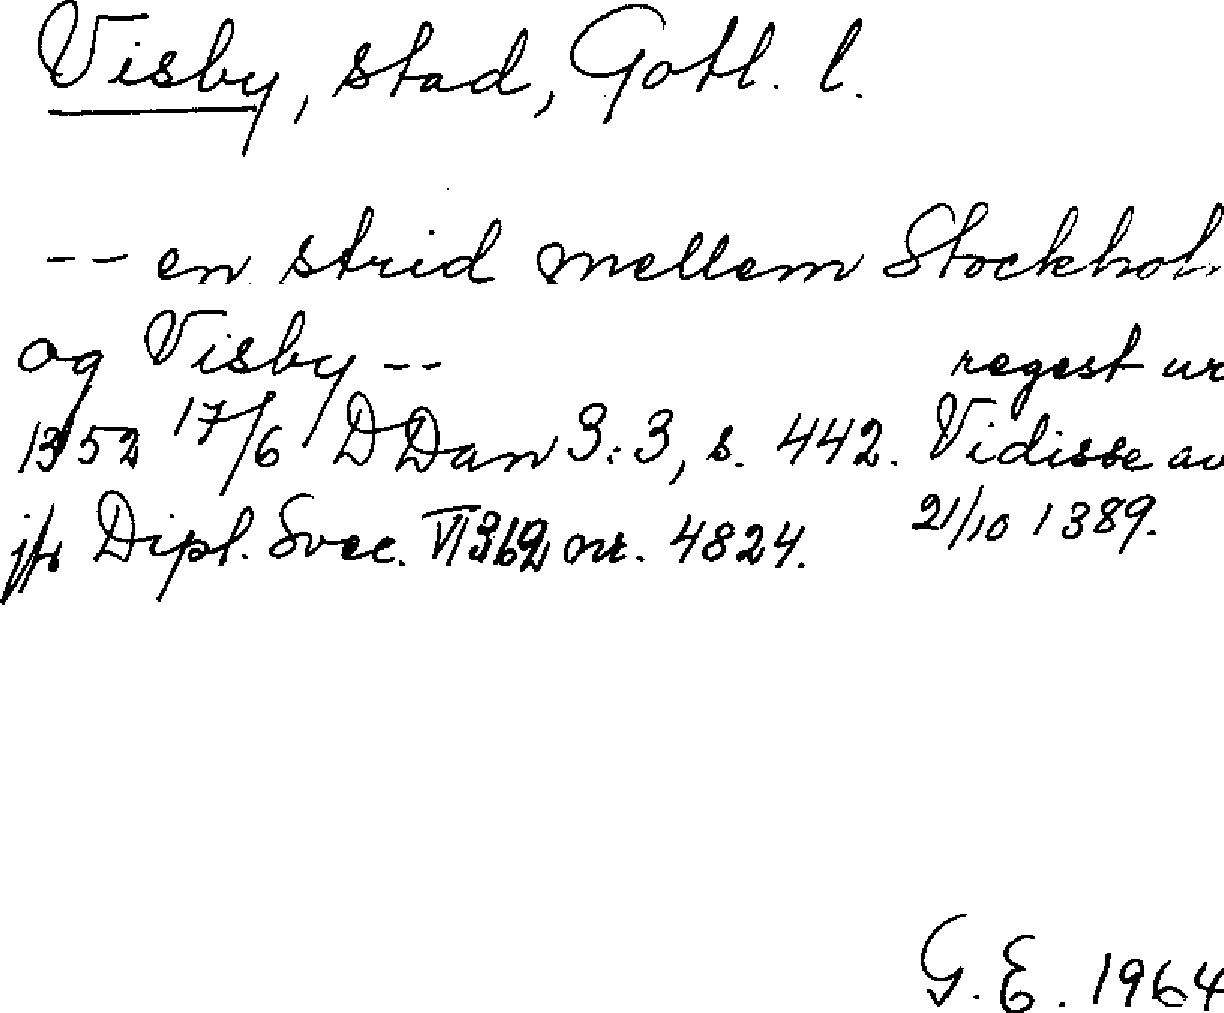 Visby, stad, Gotl. l.
-- en strid mellem Stockhol
og Visby --
regest ur
1352 17/6 DDan 3:3, s. 442. Vidisse av
jfr Dipl. Svec. VI nr. 4824. 21/10 1389.
G. E. 1964